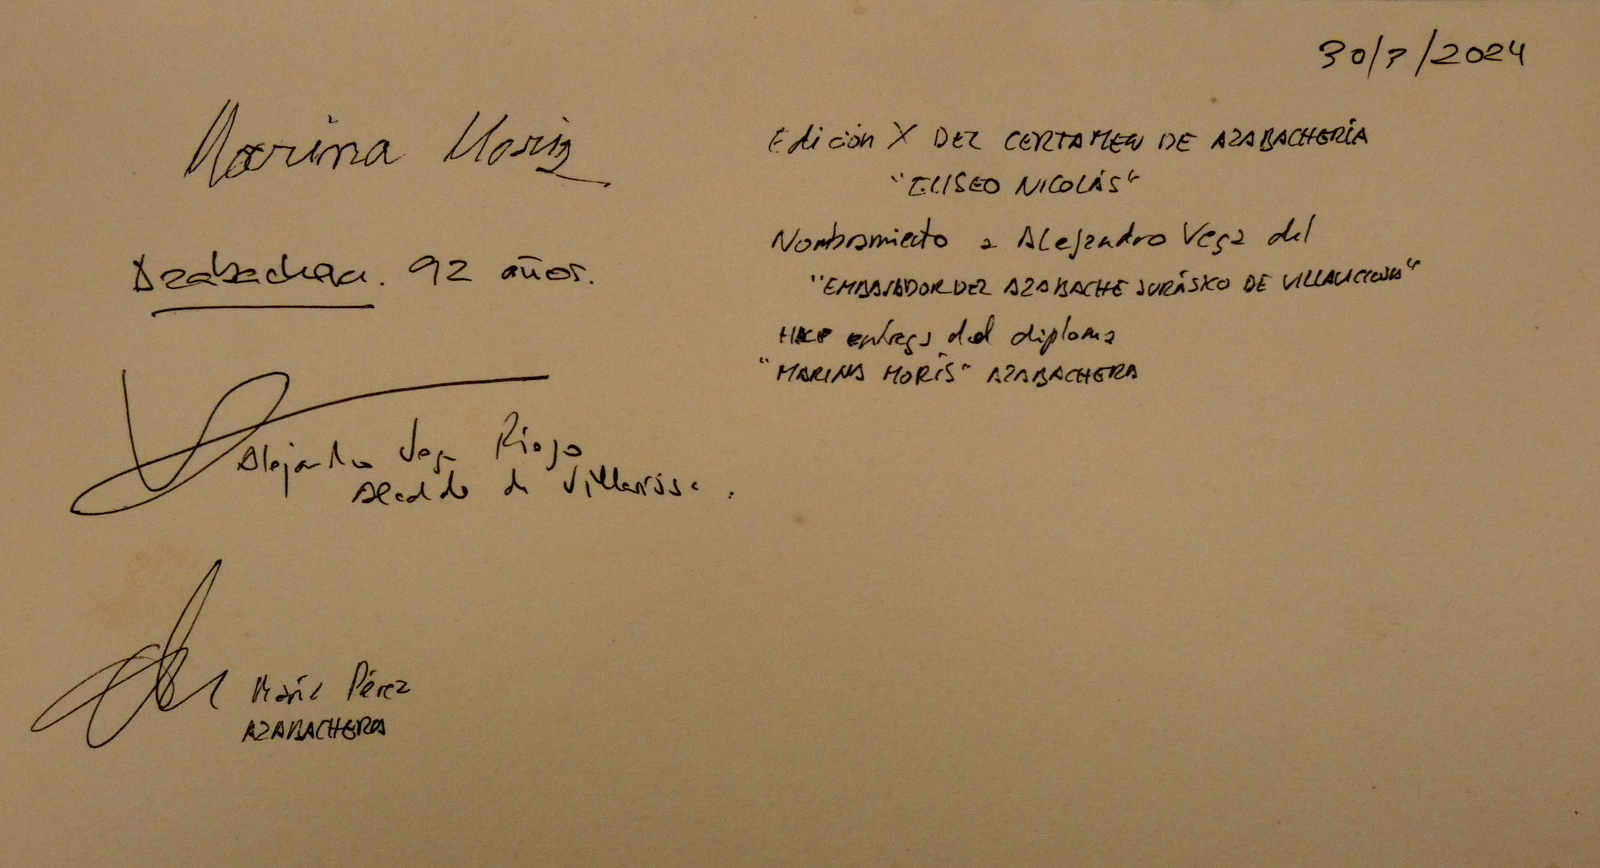 30/7/2024
Marina Moris
Azabachera. 92 años.
Alejandro Vega Riego
Alcalde de Villaviciosa.
María Pérez
AZABACHERA
Edición X DEL CERTAMEN DE AZABACHERÍA
"ELISEO NICOLÁS"
Nombramiento a Alejandro Vega del
"EMBAJADOR DEL AZABACHE JURÁSICO DE VILLAVICIOSA"
HACE entrega del diploma
"MARINA MORÍS" AZABACHERA